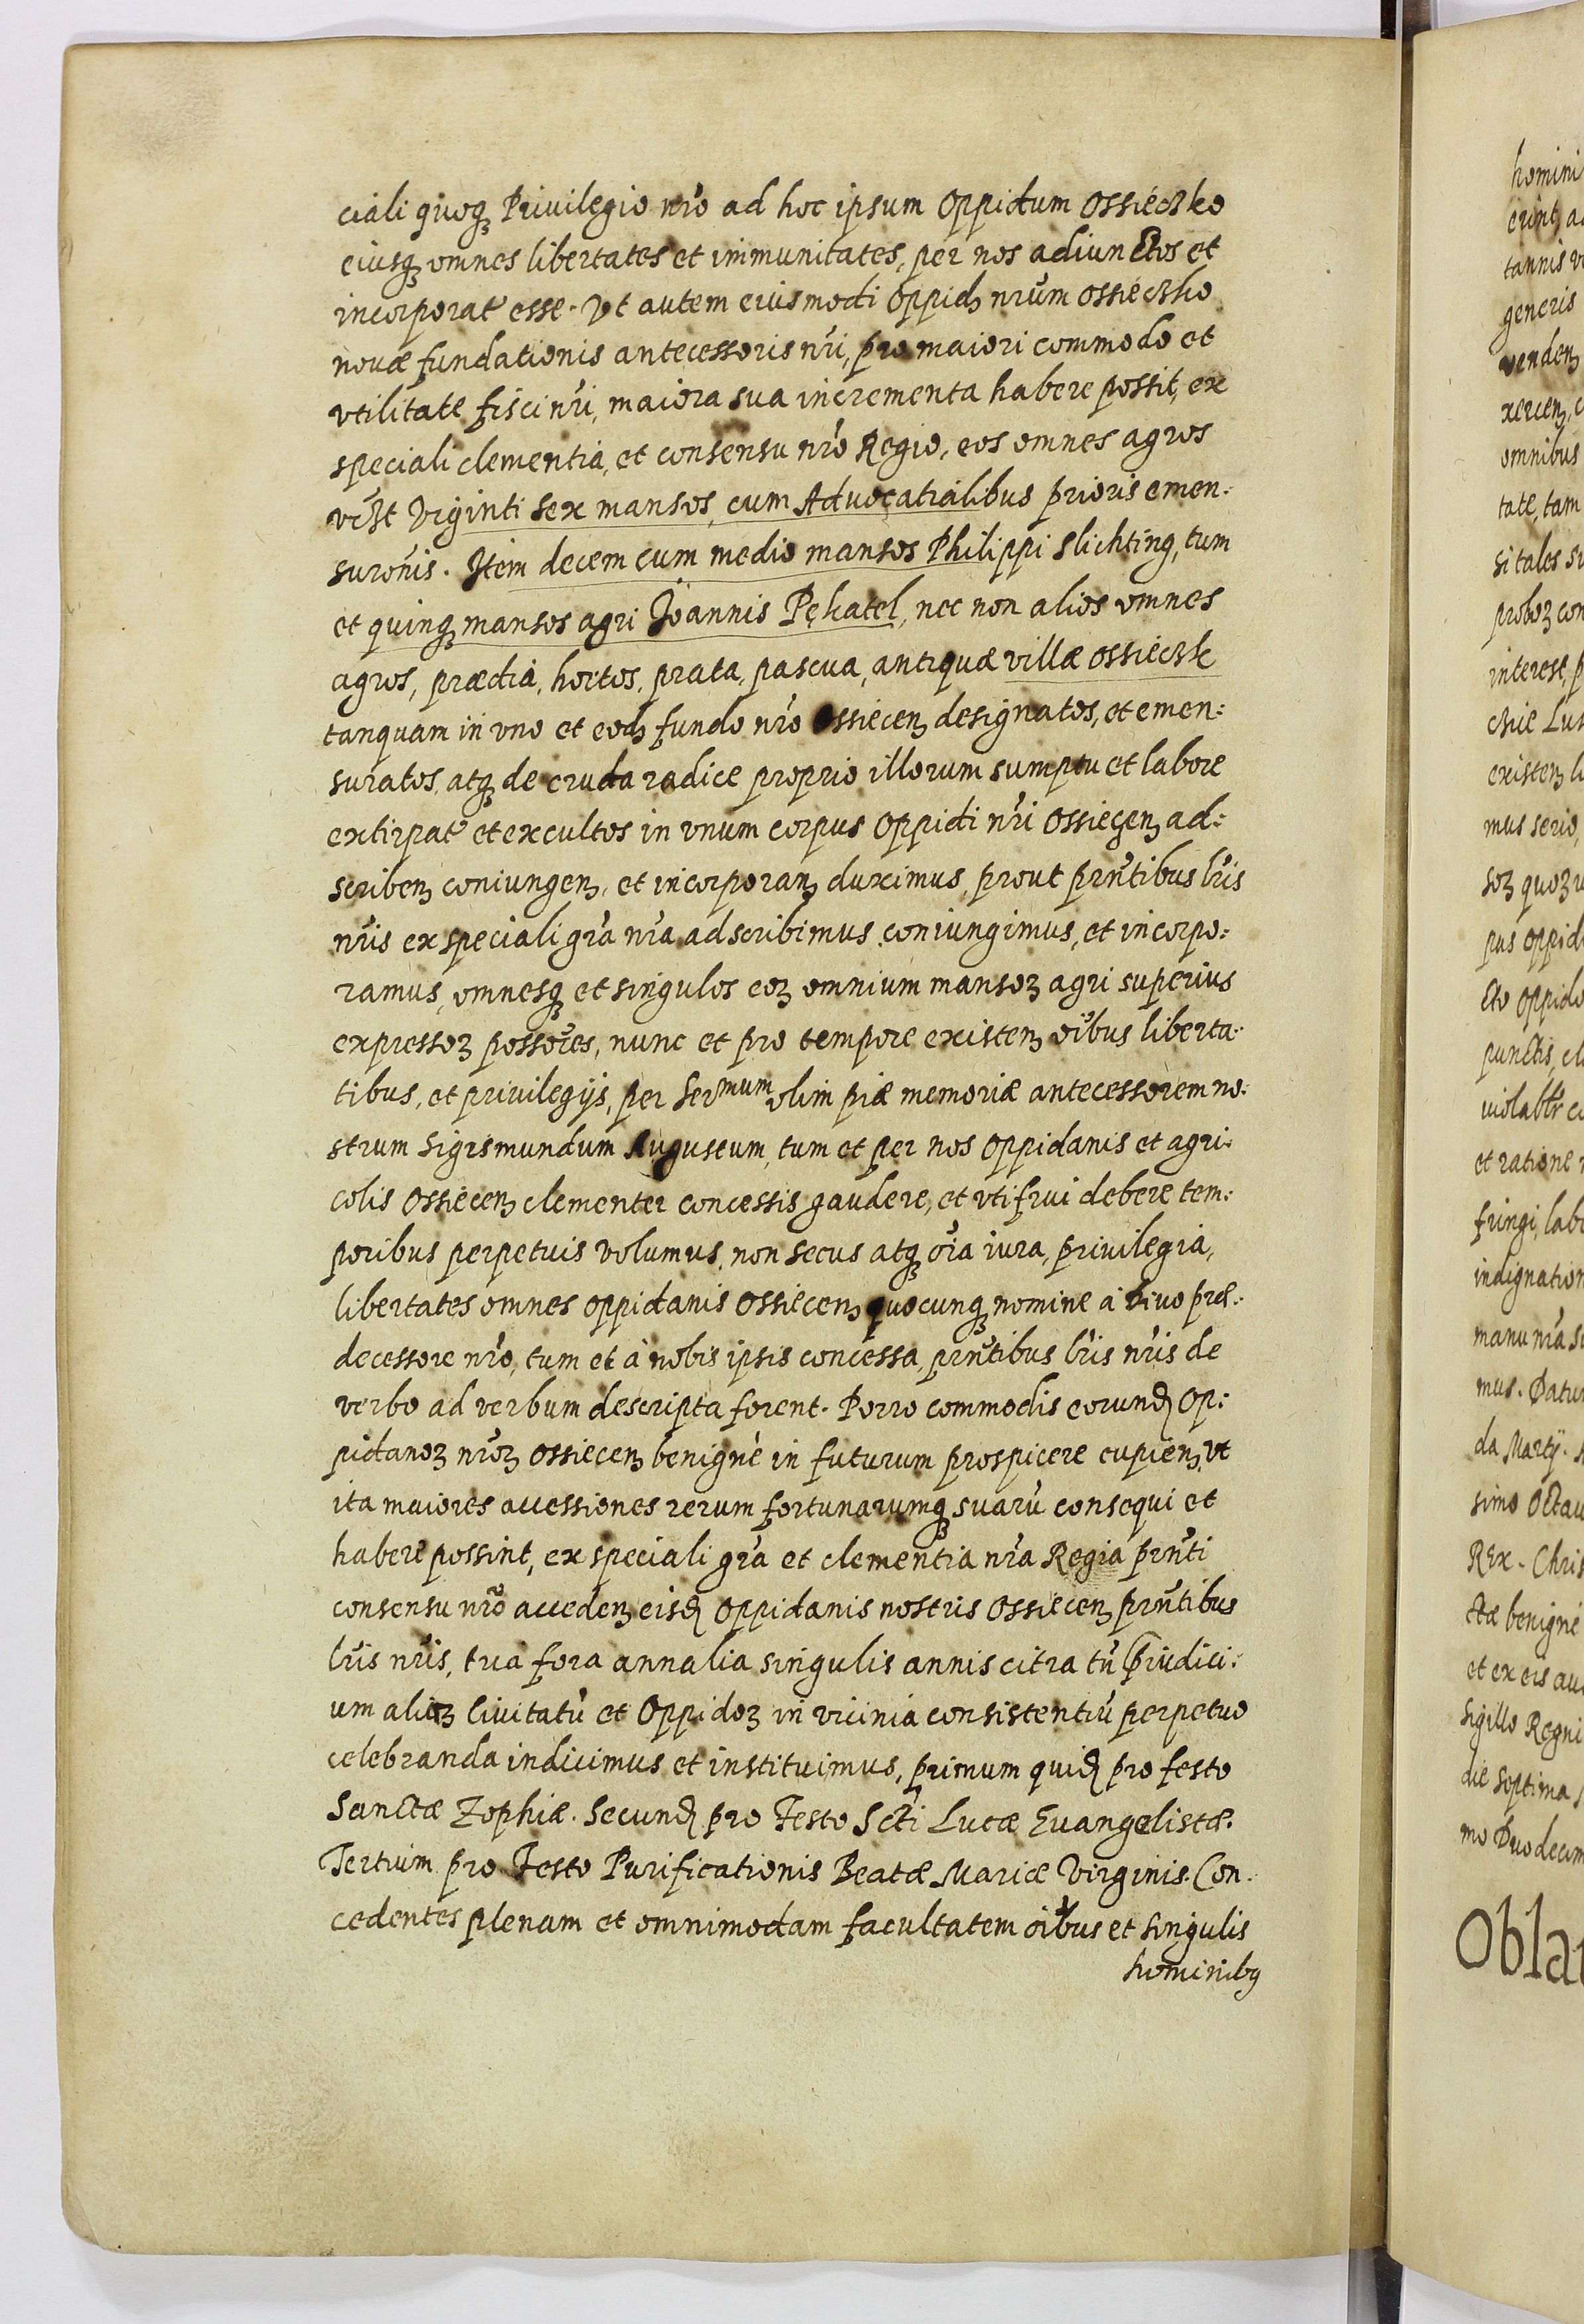 ciali quoqꝫ Priuilegio nr̃o ad hoc ipsum Oppidum Ossieczko
eiusqꝫ omnes libertates et immunitates, per nos adiunctos et
incorporat' esse. Vt autem eiusmodi Oppidꝫ nr̃um Ossieczko
nouæ fundationis antecessoris nr̃i, pro maiori commodo et
vtilitate fisci nr̃i, maiora sua incrementa habere possit, ex
speciali clementia, et consensu nr̃o Regio, eos omnes agros
vcꝫt Viginti sex mansos, cum Aduocatialibus prioris emen:
surõnis. Item decem cum medio mansos Philippi Slichting, tum
et quinqꝫ mansos agri Joannis Pękatel, nec non alios omnes
agros, prædia, hortos, prata, pascua, antiquæ villæ Ossieczk
tanquam in vno et eodꝫ fundo nr̃o Ossiecenꝫ designatos, et emen:
suratos, atqꝫ de cruda radice proprio illorum sumptu et labore
extirpat' et excultos in vnum corpus Oppidi nr̃i Ossiecenꝫ ad:
scribenꝫ coniungenꝫ, et incorporanꝫ duximus, prout prñtibus lr̃is
nr̃is ex speciali gr̃a nr̃a adscribimus coniungimus, et incorpo:
ramus, omnesqꝫ et singulos eoꝝ omnium mansoꝝ agri superius
expressoꝝ posso͠res, nunc et pro tempore existenꝫ oĩbus liberta:
tibus, et priuilegijs, per Ser<sup>mum</sup> olim piæ memoriæ antecessorem no:
strum Sigismundum Augustum, tum et per nos Oppidanis et agri:
colis Ossiecenꝫ clementer concessis gaudere, et vti frui debere tem:
poribus perpetuis volumus, non secus atqꝫ oĩa iura, priuilegia,
libertates omnes oppidanis Ossiecenꝫ quocunqꝫ nomine à Diuo præ:
decessore nr̃o, tum et à nobis ipsis concessa, prñtibus lr̃is nr̃is de
verbo ad verbum descripta forent. Porro commodis eorundꝫ Op:
pidanoꝝ nr̃oꝝ Ossiecenꝫ benignè in futurum prospicere cupienꝫ, vt
ita maiores accessiones rerum fortunarumqꝫ suarũ consequi et
habere possint, ex speciali gr̃a et clementia nr̃a Regia prñti
consensu nr̃o accedenꝫ eisdꝫ Oppidanis nostris Ossiecenꝫ prñtibus
lr̃is nr̃is, tria fora annalia singulis annis citra tñ p̃iudici:
um aliaꝝ Ciuitatũ et Oppidoꝝ in vicinia consistentiũ perpetuo
celebranda indicimus et instituimus, primum quidꝫ pro festo
Sanctæ Zophiæ. Secundꝫ pro Festo Scti Lucæ Euangelistæ.
Tertium pro Festo Purificationis Beatæ Mariæ Virginis. Con:
cedentes plenam et omnimodam facultatem oĩbus et singulis
hominibꝰ
homini
tannis
generis
omnibus
tate, tam
si tales
interest,
mus serio,
pus oppid
et ratione
indignation
manu nr̃a
mus. Datu
da Martij.
simo Octau
Rex. Chris
ctæ benignè
Sigillo Regni
die Septima
mo Duodecim
Obla